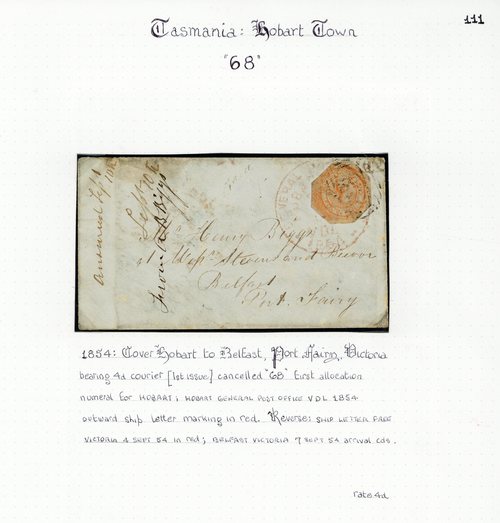 Tasmania: Hobart Town
111
"68"
answered Sept
Sept 10
from A B Biggs
GENERAL
Mr Henry Biggs
at Messrs
Belfast
Port Fairy
1854: Cover Hobart to Belfast, Port Fairy, Victoria
bearing 4d courier [1st issue] cancelled "68" first allocation
numeral for HOBART; HOBART GENERAL POST OFFICE VDL 1854
outward ship letter marking in red. Reverse: SHIP LETTER FREE
VICTORIA 4 SEPT 54 in red; BELFAST VICTORIA 7 SEPT 54 arrival cds.
rate 4d